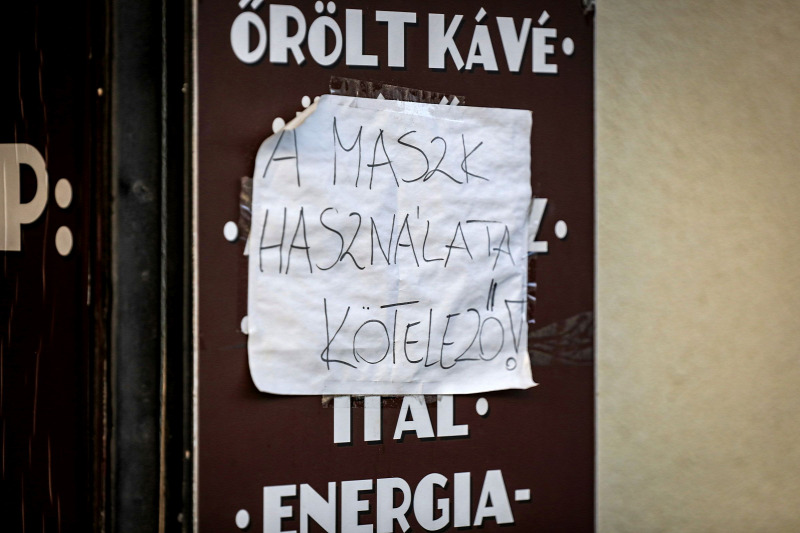 ŐRÖLT KÁVÉ•
P:
A MASZK
HASZNÁLATA
KÖTELEZŐ!
ITAL•
•ENERGIA-